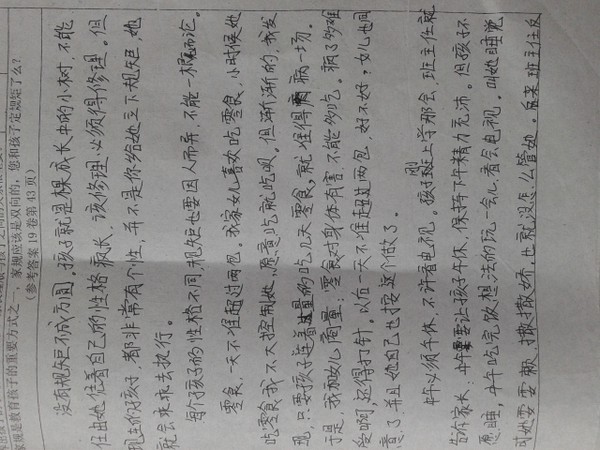 家规是教育孩子的重要方式之一,家规应该是双向的。您和孩子定规矩了么?
(参考答案 19 卷第 43 页)
没有规矩不成方圆。孩子就是棵成长中的小树,不能
任由她凭着自己的性格疯长,该修理必须得修理。但
现在的孩子,都非常有个性,并不是你给她立下规矩,她
就会乖乖去执行。
每个孩子的性格不同,规矩也要因人而异,不能一概而论。
零食,一天不准超过两包。我家女儿喜欢吃零食,小时候她
吃零食我不大控制她,愿意吃就吃呗,但渐渐的,我发
现,只要孩子连着的吃几天零食,就准得病一场。
于是,我和女儿商量:零食对身体有害,不能多吃。病了多难
受啊,还得打针。以后一天不准超过两包,好不好,女儿也同
意了,并且她自己也按这个做了。
中午必须午休,不许看电视。孩子刚上学那会,班主任就
告诉家长:中午要让孩子午休,保持下午精力充沛。但孩子不
愿睡,中午吃完饭想法的玩一会儿,看会电视,叫她睡觉
可她耍耍赖,撒撒娇,也就没怎么管她。后来班主任反